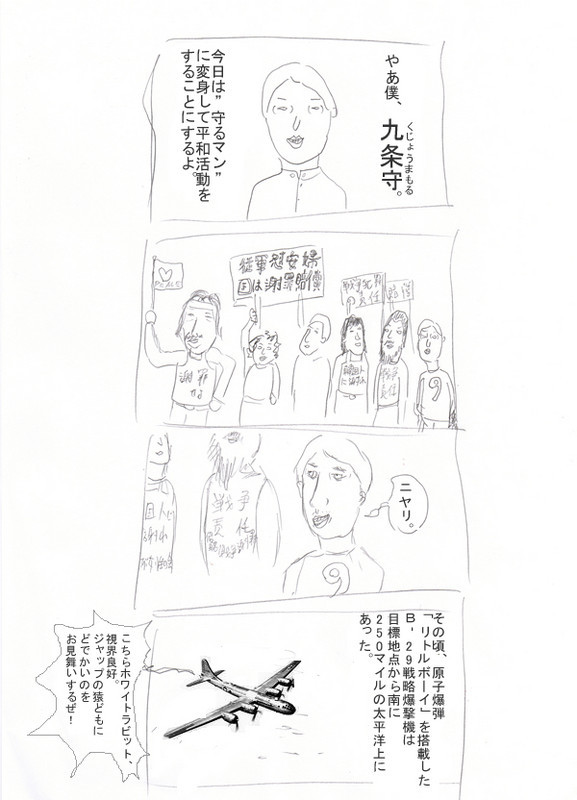 やあ僕、
九条守。
くじょうまもる
今日は”守るマン”
に変身して平和活動を
することにするよ。
従軍慰安婦
国は謝罪賠償
戦争犯罪
責任
謝罪
戦争
責任
9
戦争
責任
9
ニヤリ。
その頃、原子爆弾
「リトルボーイ」を搭載した
B-29戦略爆撃機は
目標地点から南に
250マイルの太平洋上に
あった。
こちらホワイトラビット、
視界良好。
ジャップの猿どもに
どでかいのを
お見舞いするぜ！